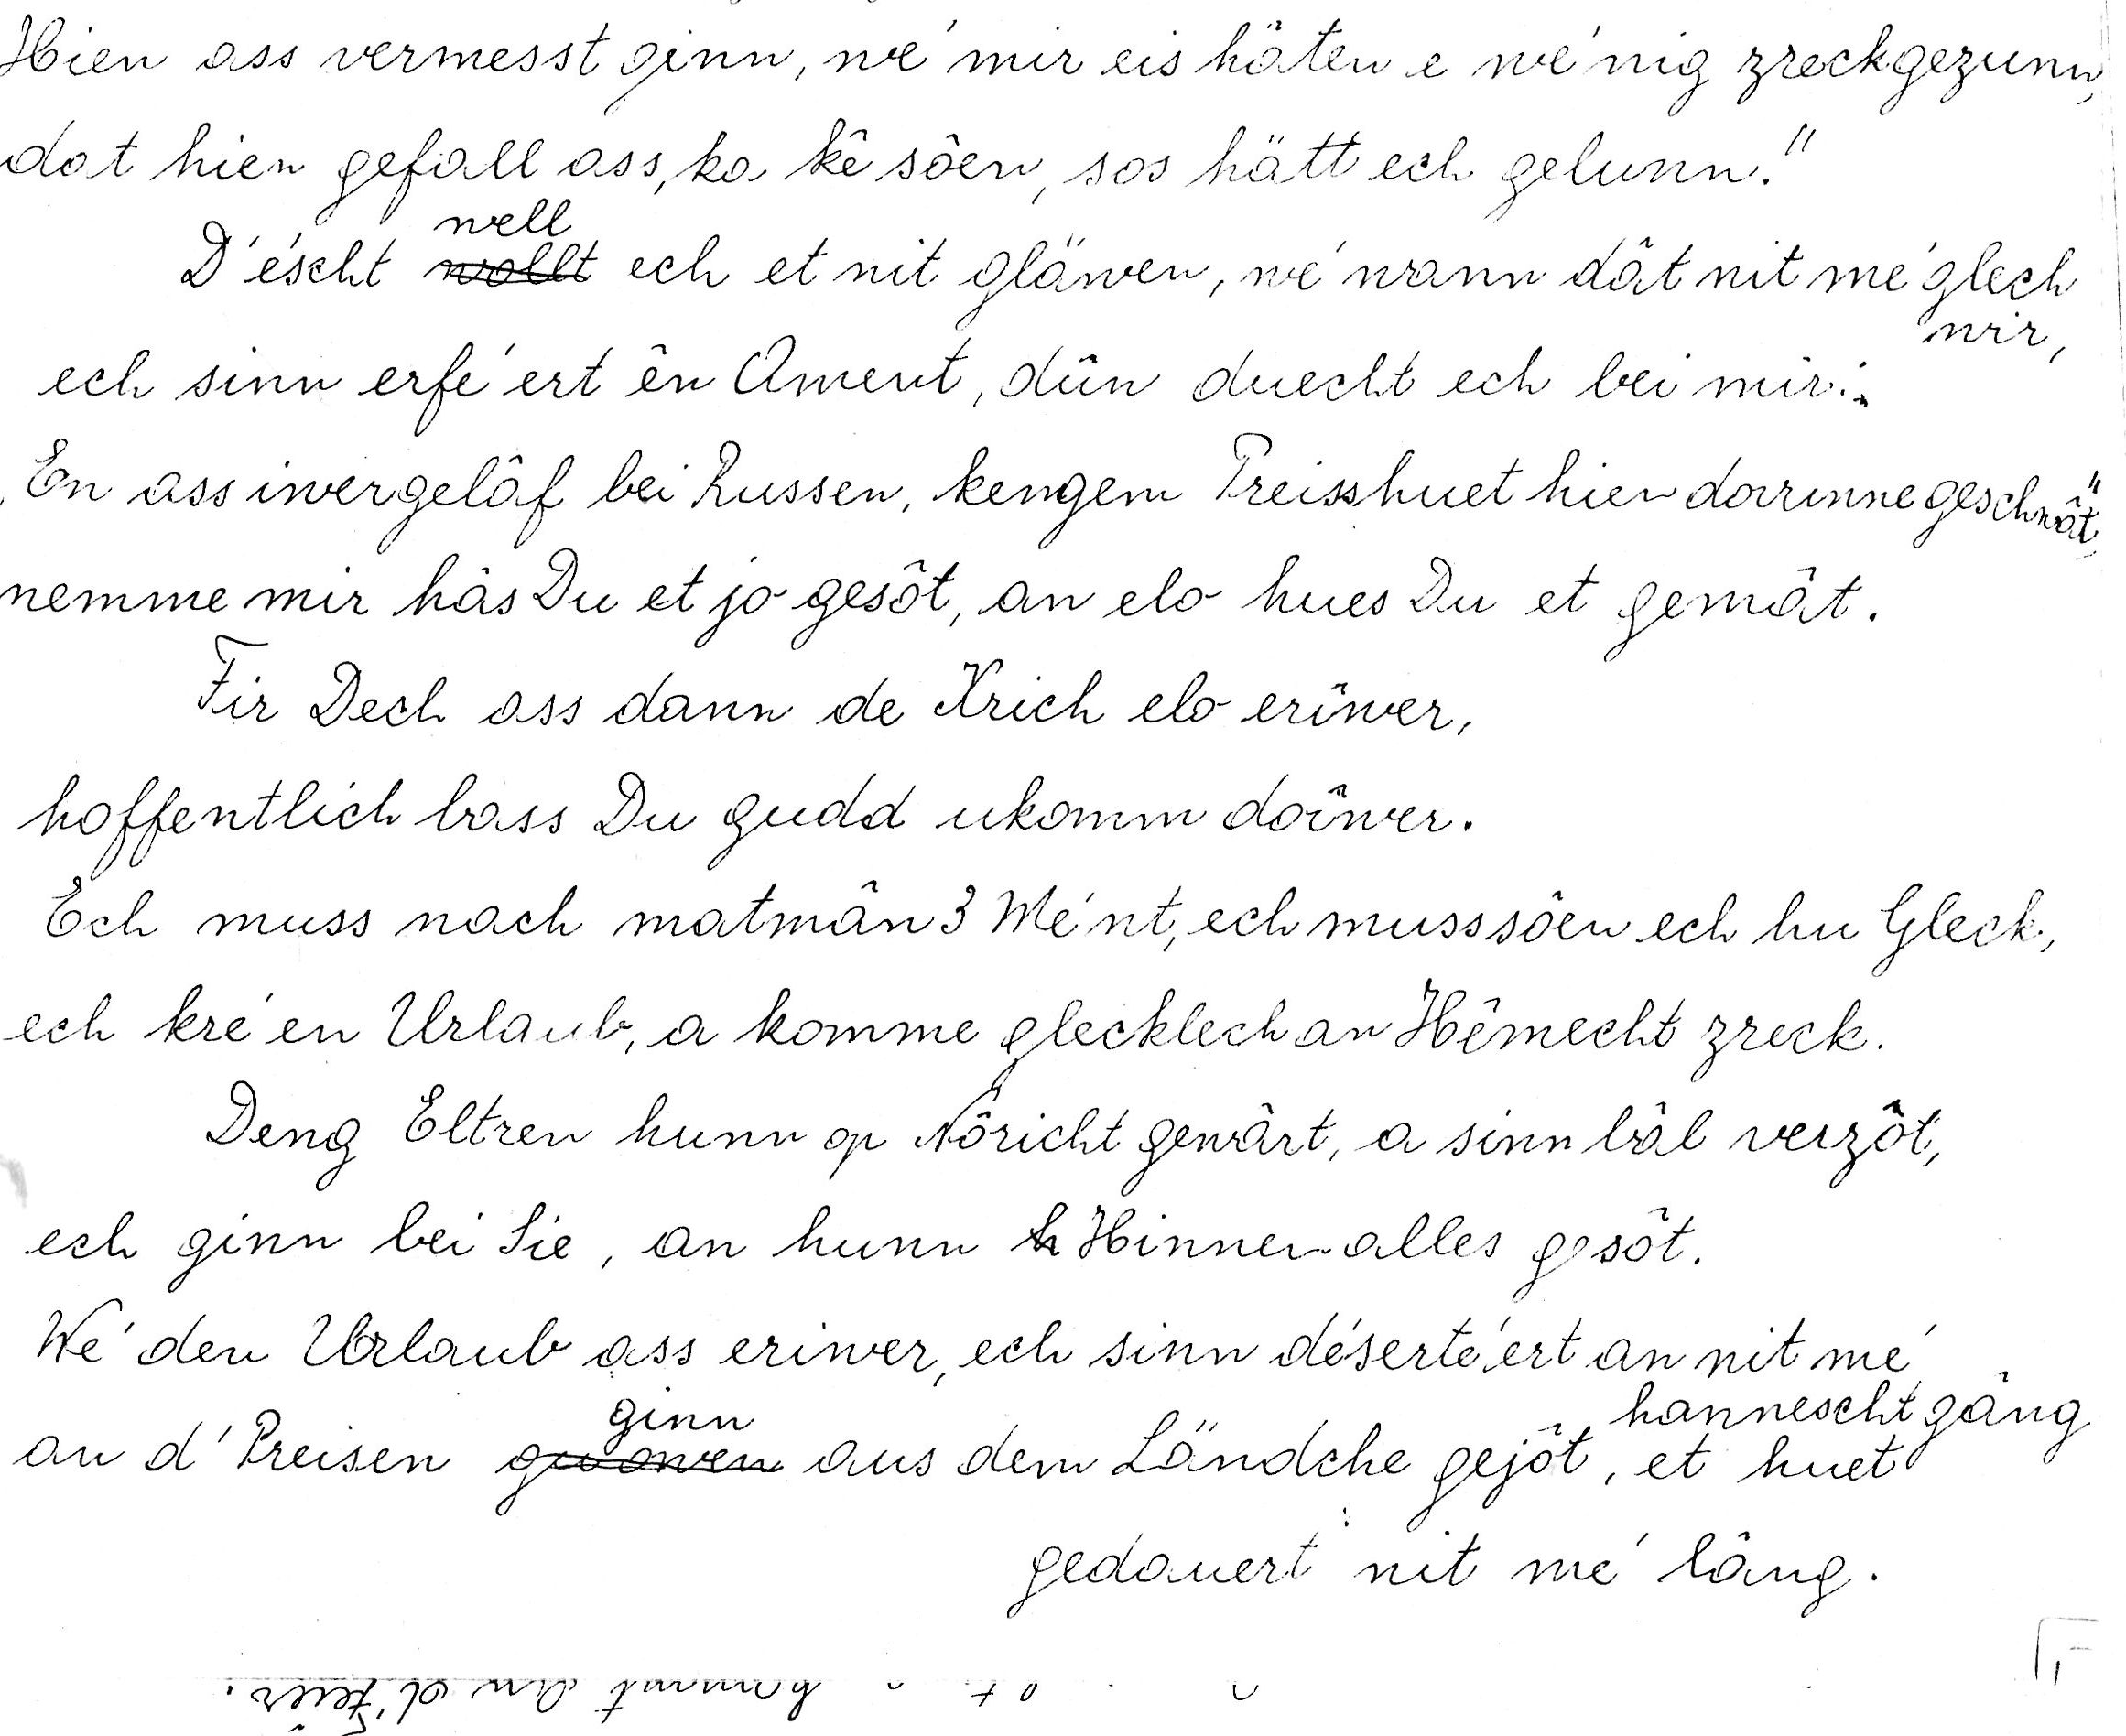 Hien ass vermesst ginn, wé mir eis hâten e wé'nig zreckgezunn,
dat hien gefall ass, ka kê sôen, sos hätt ech gelunn."
well
D'éscht wollt ech et nit gläwen, wé wann dât nit mé'glech
wir,
ech sinn erfé'ert ên Ament, dûn duecht ech bei mir:
En ass iwergelâf bei Russen, kengem Preisshuet hien dorinne geschwât"
nemme mir hâs Du et jo gesôt, an elo hues Du et gemât.
Fir Dech ass dann de Krich elo eriwer,
hoffentlich bass Du gudd ukomm doiwer.
Ech muss nach matmân 3 Mé'nt, ech muss sôen ech hu Gleck,
ech kré'en Urlaub, a komme glecklech an Hêmecht zreck.
Deng Eltren hunn op Nôricht gewârt, a sinn bâl verzôt,
ech ginn bei Sie, an hunn Hinnen alles gesôt.
Wé' den Urlaub ass eriwer, ech sinn déserté'ert an nit mé
ginn hannescht gâng
an d'Preisen aus dem Ländche gejôt, et huet
gedauert nit mé' lâng.
kommt an d'Feier.